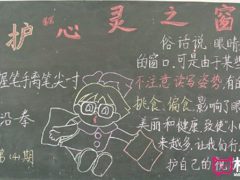 护心灵之窗
俗话说眼睛
的窗口,可是由于某些
不注意读写姿势,有
挑食、偏食影响了眼
美丽和健康,致使“小
来越多,让我们行
护自己的视
握笔手离笔尖一寸
沿拳
第(4)期